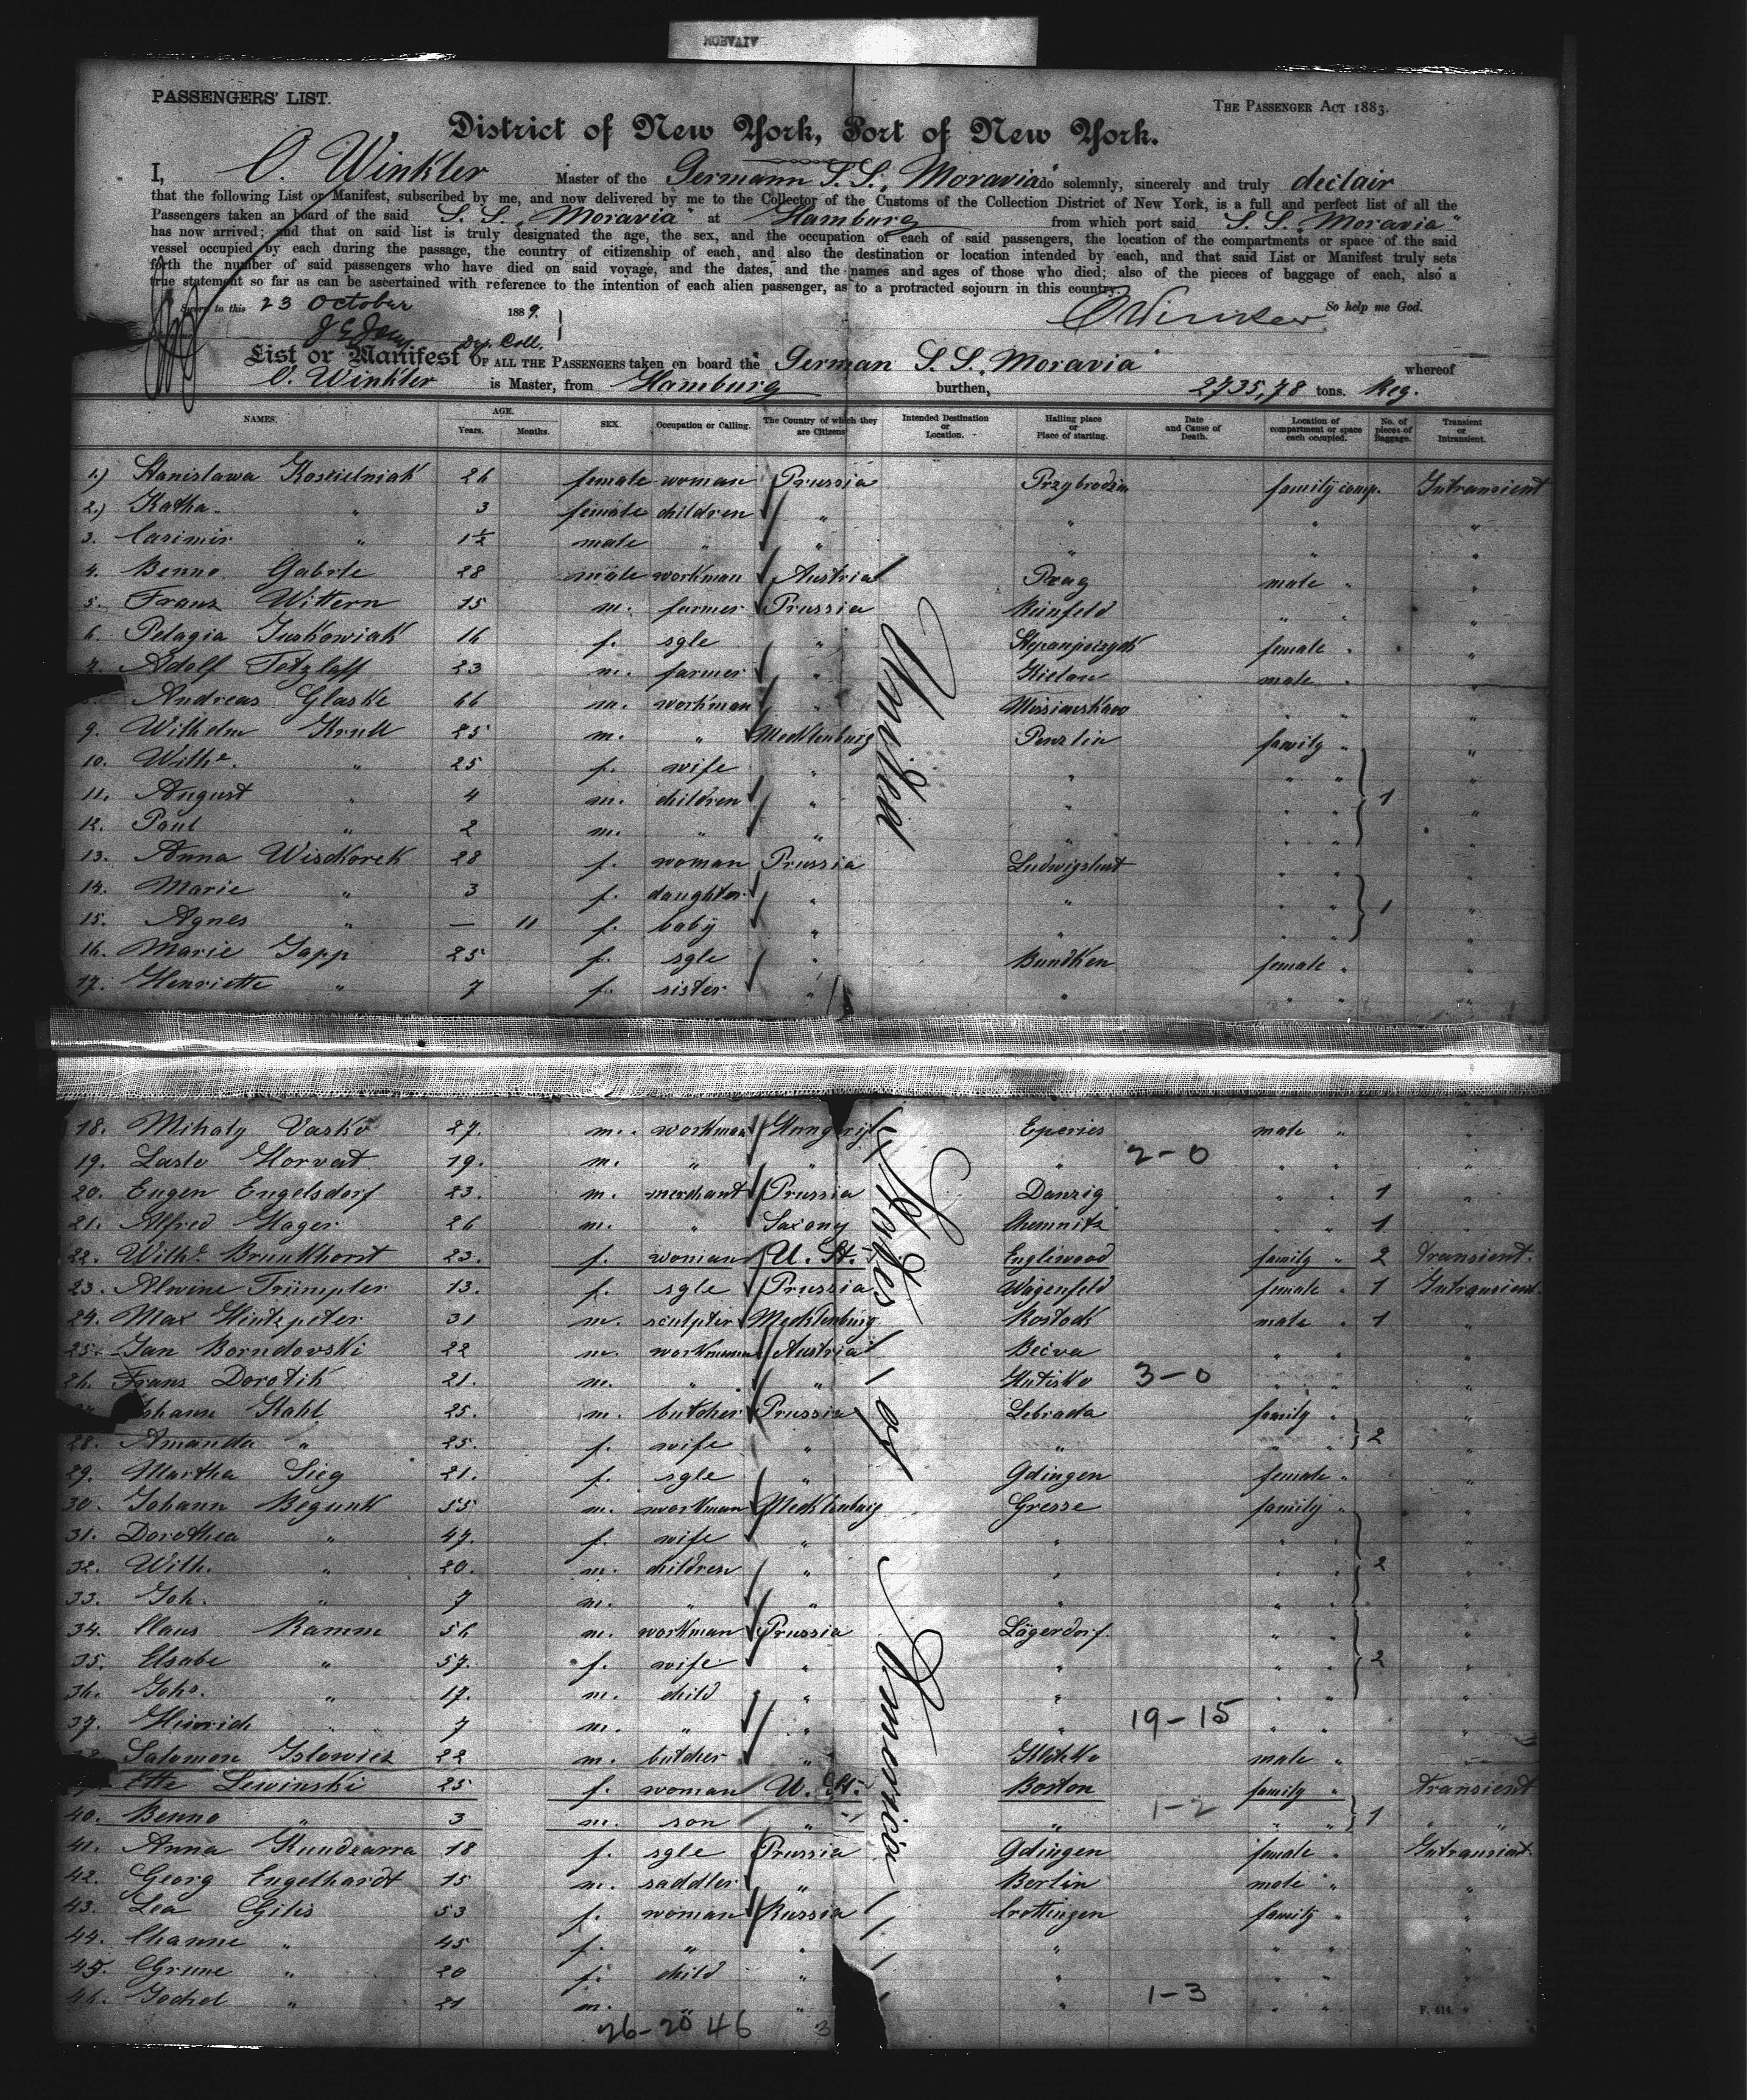 MORAVIA
PASSENGERS' LIST.
THE PASSENGER ACT 1883.
District of New York, Port of New York.
I, O. Winkler Master of the Germann S.S. „Moravia" do solemnly, sincerely and truly declair
that the following List or Manifest, subscribed by me, and now delivered by me to the Collector of the Customs of the Collection District of New York, is a full and perfect list of all the
Passengers taken on board of the said S. S. „Moravia" at Hamburg from which port said S. S. „Moravia"
has now arrived; and that on said list is truly designated the age, the sex, and the occupation of each of said passengers, the location of the compartments or space of the said
vessel occupied by each during the passage, the country of citizenship of each, and also the destination or location intended by each, and that said List or Manifest truly sets
forth the number of said passengers who have died on said voyage, and the dates, and the names and ages of those who died; also of the pieces of baggage of each, also a
true statement so far as can be ascertained with reference to the intention of each alien passenger, as to a protracted sojourn in this country.
Sworn to this 23 October 1889. O Winkler So help me God.
Dep. Coll.
List or Manifest OF ALL THE PASSENGERS taken on board the German S. S. „Moravia" whereof
O. Winkler is Master, from Hamburg burthen, 2735,78 tons. Reg.
NAMES. AGE. Years. Months. SEX. Occupation or Calling. The Country of which they are Citizens Intended Destination or Location. Hailing place or Place of starting. Date and Cause of Death. Location of compartment or space each occupied. No. of pieces of Baggage. Transient or Intransient.
1.) Stanislawa Koscielniak 26 female woman Prussia Przybrodzin family comp. Intransient
2.) Katha. " 3 female children " " " "
3. Casimir " 1½ male " " " " "
4. Benno Gabrle 28 male workman Austria Prag male " "
5. Franz Wittern 15 m. farmer Prussia Reinfeld " " "
6. Pelagia Juskowiak 16 f. sgle " female " "
7. Adolf Tetzlaff 23 m. farmer " Kielau male " "
Andreas Glaske 66 m. workman " " " "
9. Wilhelm Krull 25 m. " Mecklenburg Penzlin family " "
10. Wilhe. " 25 f. wife " " " " "
11. August " 4 m. children " " " " 1 "
12. Paul " 2 m. " " " " " "
13. Anna Wisckorek 28 f. woman Prussia Ludwigslust
14. Marie " 3 f. daughter " " " " "
15. Agnes " — 11 f. baby " " " " 1 "
16. Marie Gapp 25 f. sgle " Bundken female " "
17. Henriette " 7 f. sister " " " " "
18. Mihaly Vasko 27. m. workman Hungary Eperies male " "
19. Laslo Horvat 19. m. " " " 2-0 " " "
20. Eugen Engelsdorf 23. m. merchant Prussia Danzig " " 1 "
21. Alfred Hager 26 m. " Saxony Chemnitz " " 1 "
22. Wilhe. Brunkhorst 23. f. woman U. St. Englewood family " 2 Transient.
23. Alwine Trümpler 13. f. sgle Prussia Wagenfeld female " 1 Intransient.
24. Max Hintzpeter 31 m. sculpter Mecklenburg Rostock male " 1 "
25. Jan Borndovski 22 m. workmann Austria Bečva " " "
26. Franz Dorotik 21. m. " " Hutisko 3-0 " " "
Johann Stahl 25. m. butcher Prussia Lebrada family " "
28. Amanda " 25. f. wife " " " " 2 "
29. Martha Sieg 21. f. sgle " Gdingen female " "
30. Johann Begunk 55 m. workman Mecklenburg Gresse family " "
31. Dorothea " 47. f. wife " " " " "
32. Wilh. " 20. m. children " " " " 2 "
33. Joh. " 7 m. " " " " " "
34. Claus Ramm 56 m. workman Prussia Lägerdorf. " " "
35. Elsabe " 57. f. wife " " " " 2 "
36. Johs. " 17. m. child " " " " "
37. Hinrich " 7 m. " " " 19-15 " " "
Salomon Islowicz 22 m. butcher " male " "
Lewinski 25 f. woman U. St. Boston family " Transient
40. Benno " 3 m. son " " 1-2 " " 1 " "
41. Anna Kundzarra 18 f. sgle Prussia Gdingen female " Intransient.
42. Georg Engelhardt 15 m. saddler " Berlin male " "
43. Lea Gilis 53 f. woman Russia Crottingen family " "
44. Channe " 45 f. " " " " " "
45. Grune " 20 f. child " " " " "
46. Jochel " 21 m. " " " 1-3 " " "
United States of America
26-20 46 3
F. 414